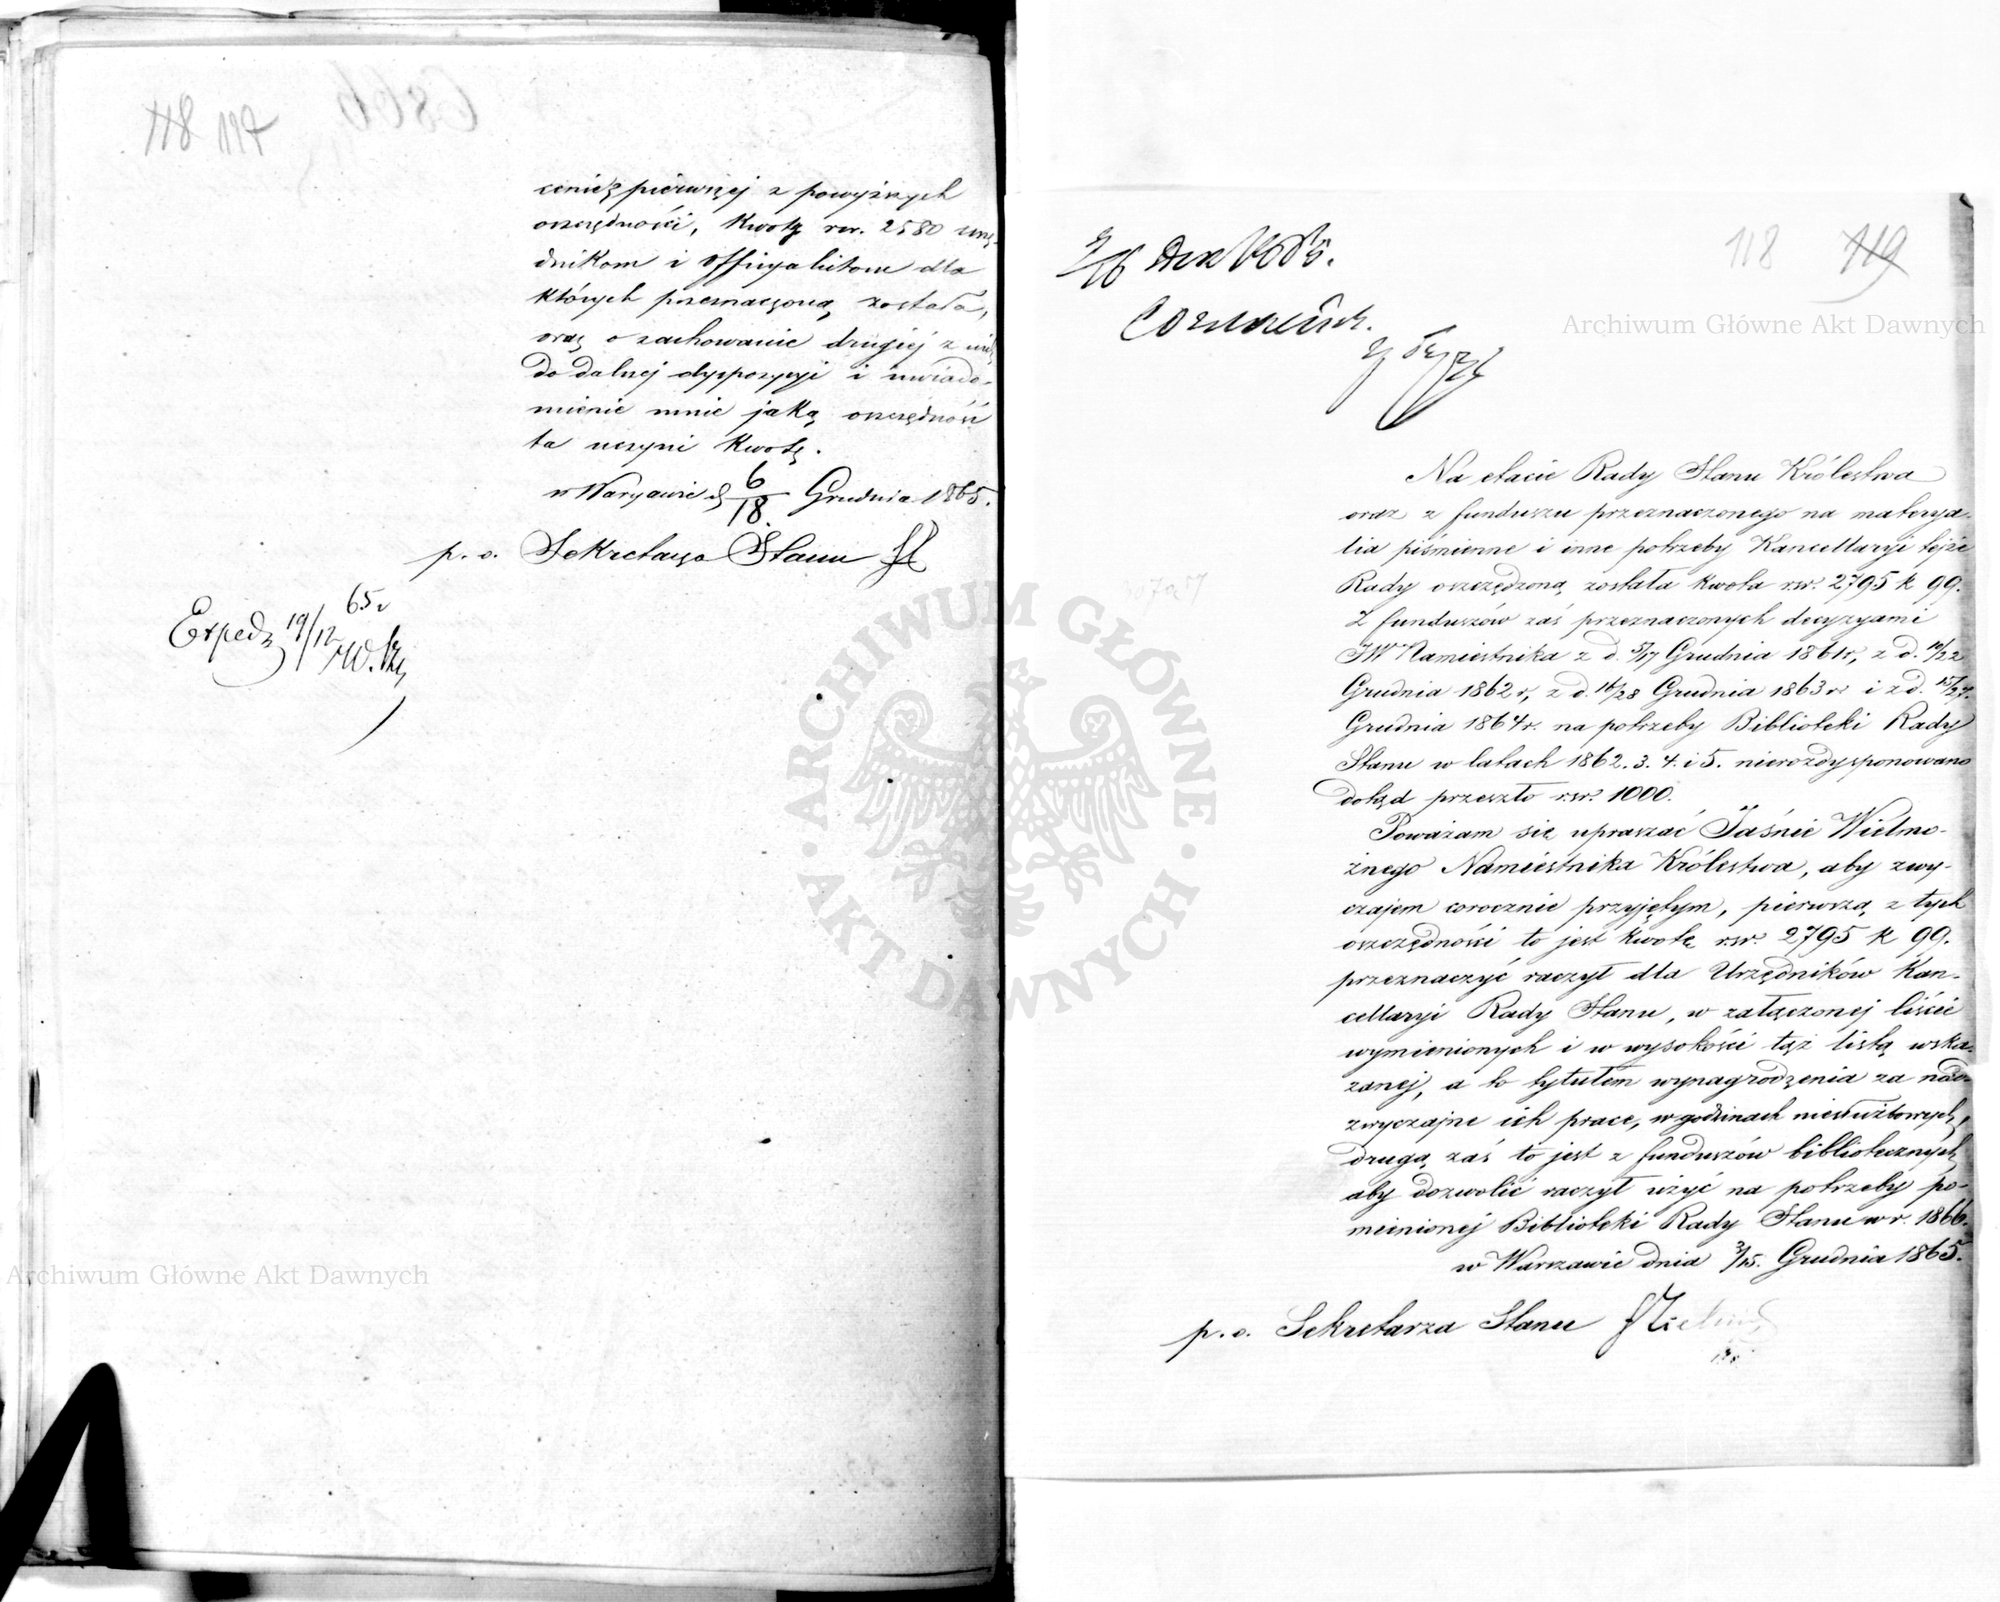 cenie pierwszej z powyższych
oszczędności, kwotę rsr. 2580 urzę-
dnikom i offiyalistom dla
których przeznaczoną została,
oraz o zachowanie drugiej z nich
do dalszej dyspozycyi i uwiado-
mienie mnie jaką oszczędność
ta uczyni kwotę.
w Warszawie d 6/18 Grudnia 1865.
p. o. Sekretarza Stanu
Exped 19/12 65 r
118 119
Archiwum Główne Akt Dawnych
Na etacie Rady Stanu Królestwa
oraz z funduszu przeznaczonego na materya-
lia piśmienne i inne potrzeby Kancellaryi tejże
Rady oszczędzoną została kwota rsr. 2795 k 99.
Z funduszów zaś przeznaczonych decyzyami
JW Namiestnika z d. 5/17 Grudnia 1861 r, z d. 10/22
Grudnia 1862 r, z d. 16/28 Grudnia 1863 r i z d. 15/27.
Grudnia 1864 r. na potrzeby Biblioteki Rady
Stanu w latach 1862. 3. 4. i 5. nierozdysponowano
dotąd przeszło rsr. 1000.
Poważam się upraszać Jaśnie Wielmo-
żnego Namiestnika Królestwa, aby zwy-
czajem corocznie przyjętym, pierwszą z tych
oszczędności to jest kwotę rsr. 2795 k 99.
przeznaczyć raczył dla Urzędników Kan-
cellaryi Rady Stanu, w załączonej liście
wymienionych i w wysokości tąż listą wska-
zanej, a to tytułem wynagrodzenia za nad-
zwyczajne ich prace, w godzinach niesłużbowych,
drugą zaś to jest z funduszów bibliotecznych
aby dozwolić raczył użyć na potrzeby po-
mienionej Biblioteki Rady Stanu w r. 1866.
w Warszawie dnia 3/15. Grudnia 1865.
p. o. Sekretarza Stanu
ARCHIWUM GŁÓWNE AKT DAWNYCH
Archiwum Główne Akt Dawnych